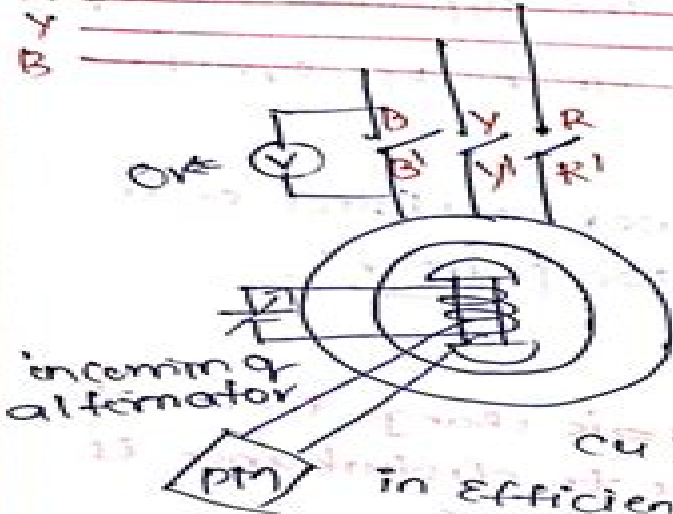 Y
B
B Y R
V
B' Y' R'
incoming
alternator
PM
cu
in Efficien